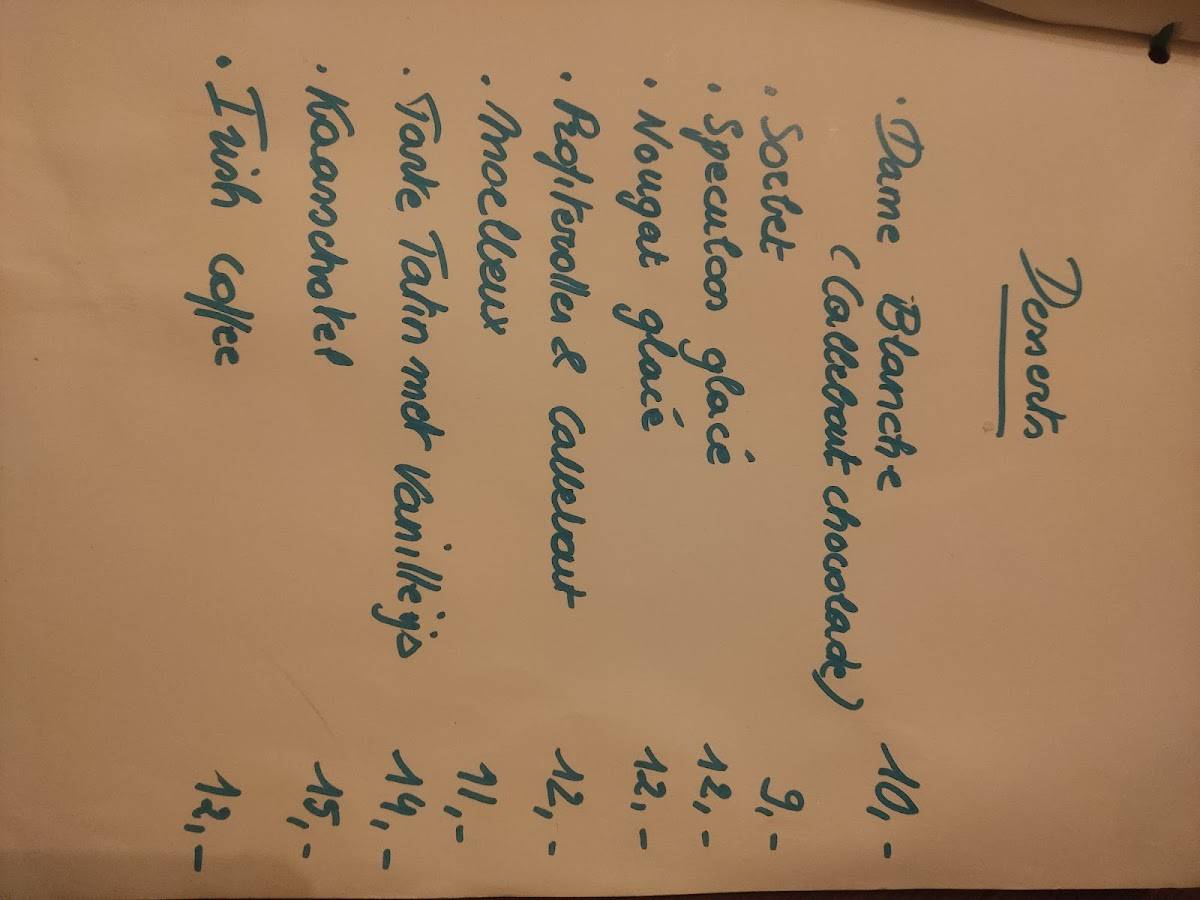 Desserts
· Dame Blanche 10,-
(Callebaut chocolade)
· Sorbet 9,-
· Speculoos glacé 12,-
· Nougat glacé 12,-
· Profiterolles & Callebaut 12,-
· Moelleux 11,-
· Tarte Tatin met Vanilleijs 14,-
· Kaasschotel 15,-
· Irish coffee 12,-